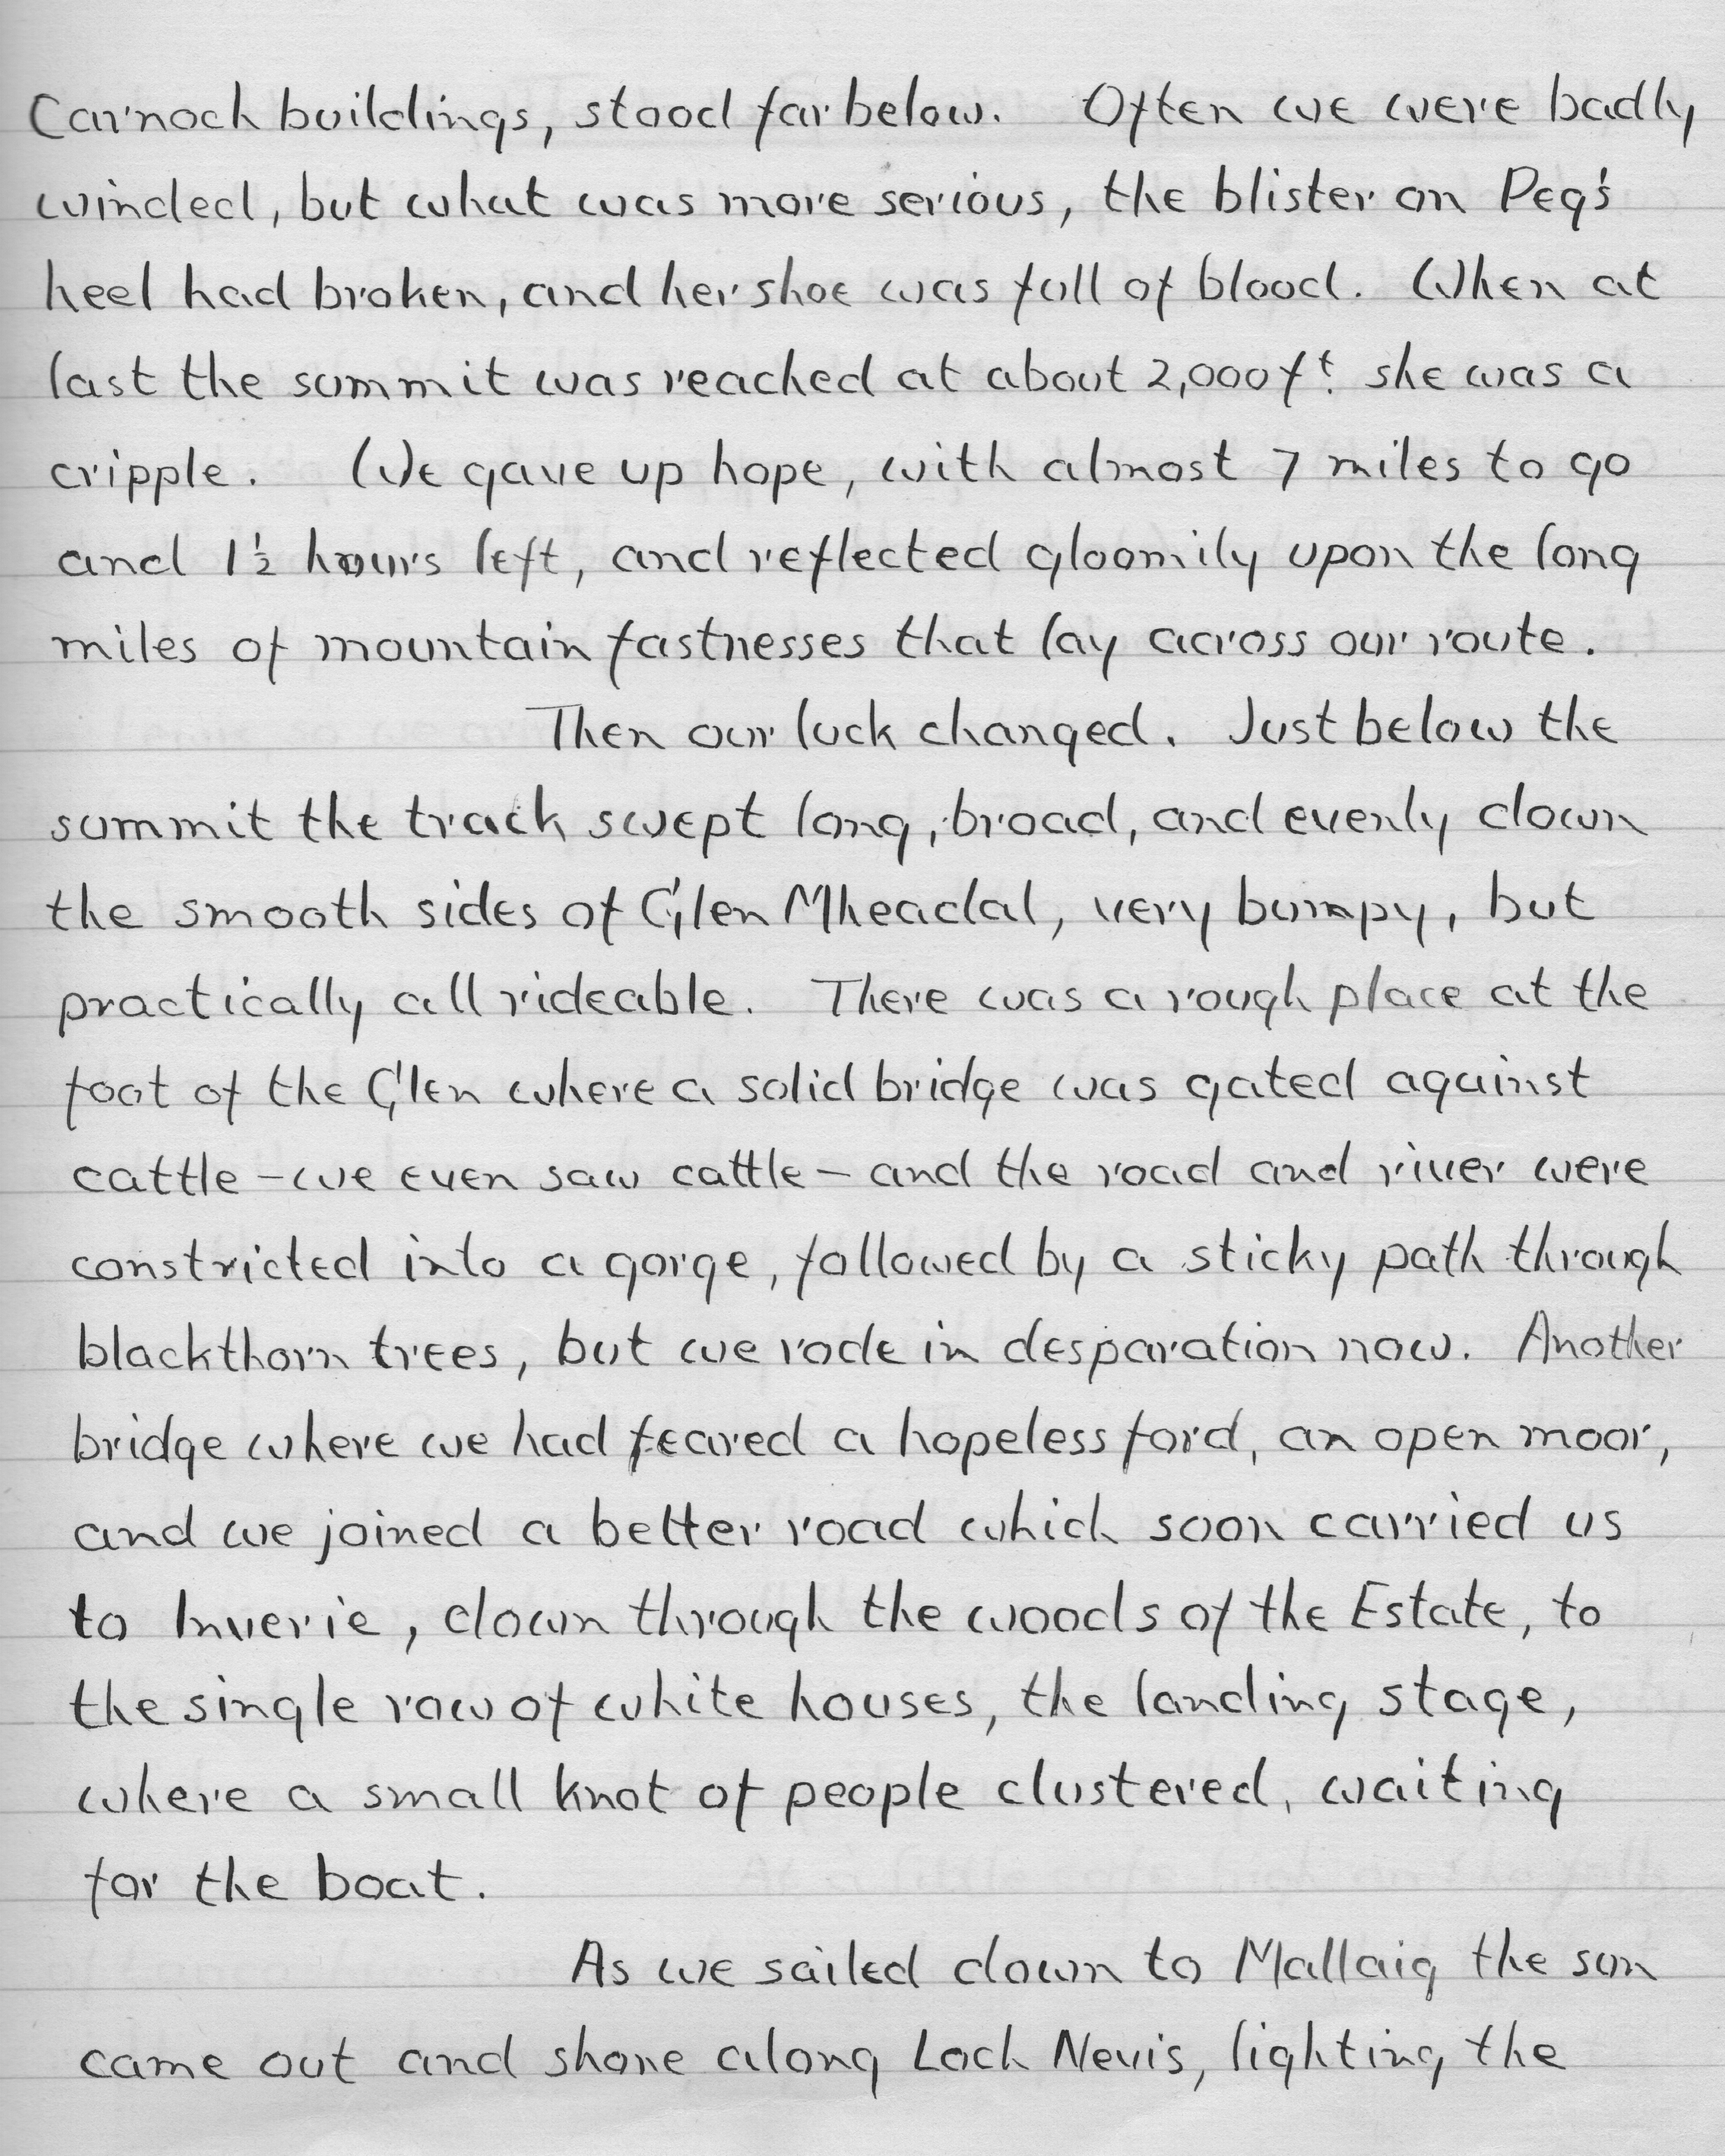 Carnoch buildings, stood far below. Often we were badly
winded, but what was more serious, the blister on Peg's
heel had broken, and her shoe was full of blood. When at
last the summit was reached at about 2,000ft. she was a
cripple. We gave up hope, with almost 7 miles to go
and 1½ hours left, and reflected gloomily upon the long
miles of mountain fastnesses that lay across our route.
Then our luck changed. Just below the
summit the track swept long, broad, and evenly down
the smooth sides of Glen Mheadal, very bumpy, but
practically all rideable. There was a rough place at the
foot of the Glen where a solid bridge was gated against
cattle – we even saw cattle – and the road and river were
constricted into a gorge, followed by a sticky path through
blackthorn trees, but we rode in desparation now. Another
bridge where we had feared a hopeless ford, an open moor,
and we joined a better road which soon carried us
to Inverie, down through the woods of the Estate, to
the single row of white houses, the landing stage,
where a small knot of people clustered, waiting
for the boat.
As we sailed down to Mallaig the sun
came out and shone along Loch Nevis, lighting the